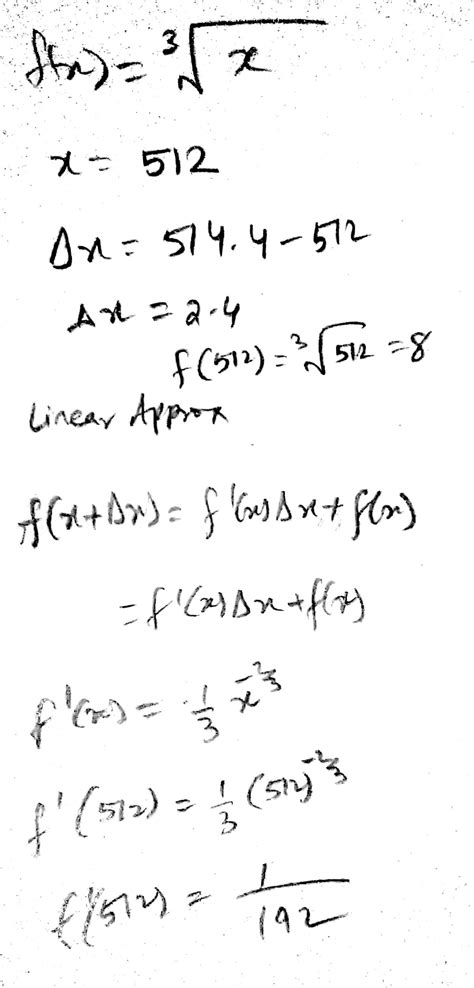 f(x) = ∛x
x = 512
Δx = 514.4 - 512
Δx = 2.4
f(512) = ∛512 = 8
Linear Approx
f(x+Δx) = f'(x)Δx + f(x)
= f'(x)Δx + f(x)
f'(x) = 1/3 x^(-2/3)
f'(512) = 1/3 (512)^(-2/3)
f'(512) = 1/192